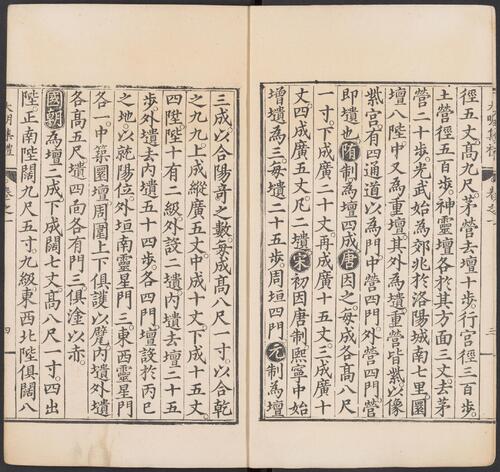 徑五丈高九尺茅營去壇十步行宫徑三百步。
土營徑五百步。神靈壇各於其方面三丈。去茅
營二十步。光武始為郊兆於洛陽城南七里。圜
壇八陛中又為重壇其外為壝重營皆紫以像
紫宫有四通道以為門。中營四門。外營四門。營
即壝也隋制為壇四成。唐因之。每成各高八尺
一寸。下成廣二十丈。再成廣十五丈。三成廣十
丈。四成廣五丈。凡二壝宋初因唐制熙寧中始
增壝為三。每壝二十五步。周垣四門元制為壇
三成。以合陽奇之數。每成高八尺一寸。以合乾
之九九。上成縱廣五丈。中成十丈。下成十五丈。
四陛陛十有二級外設二壝内壝去壇二十五
步。外壝去内壝五十四步。各四門。壇設於丙巳
之地以就陽位。外垣南靈星門三。東西靈星門
各一。中築圜壇周圍上下俱護以甓内壝外壝
各高五尺壝四向各有門三俱塗以赤。
國朝為壇二成下成闊七丈。高八尺一寸。四出
陛。正南陛闊九尺五寸。九級東西北陛俱闊八
大明集禮 卷之一 四